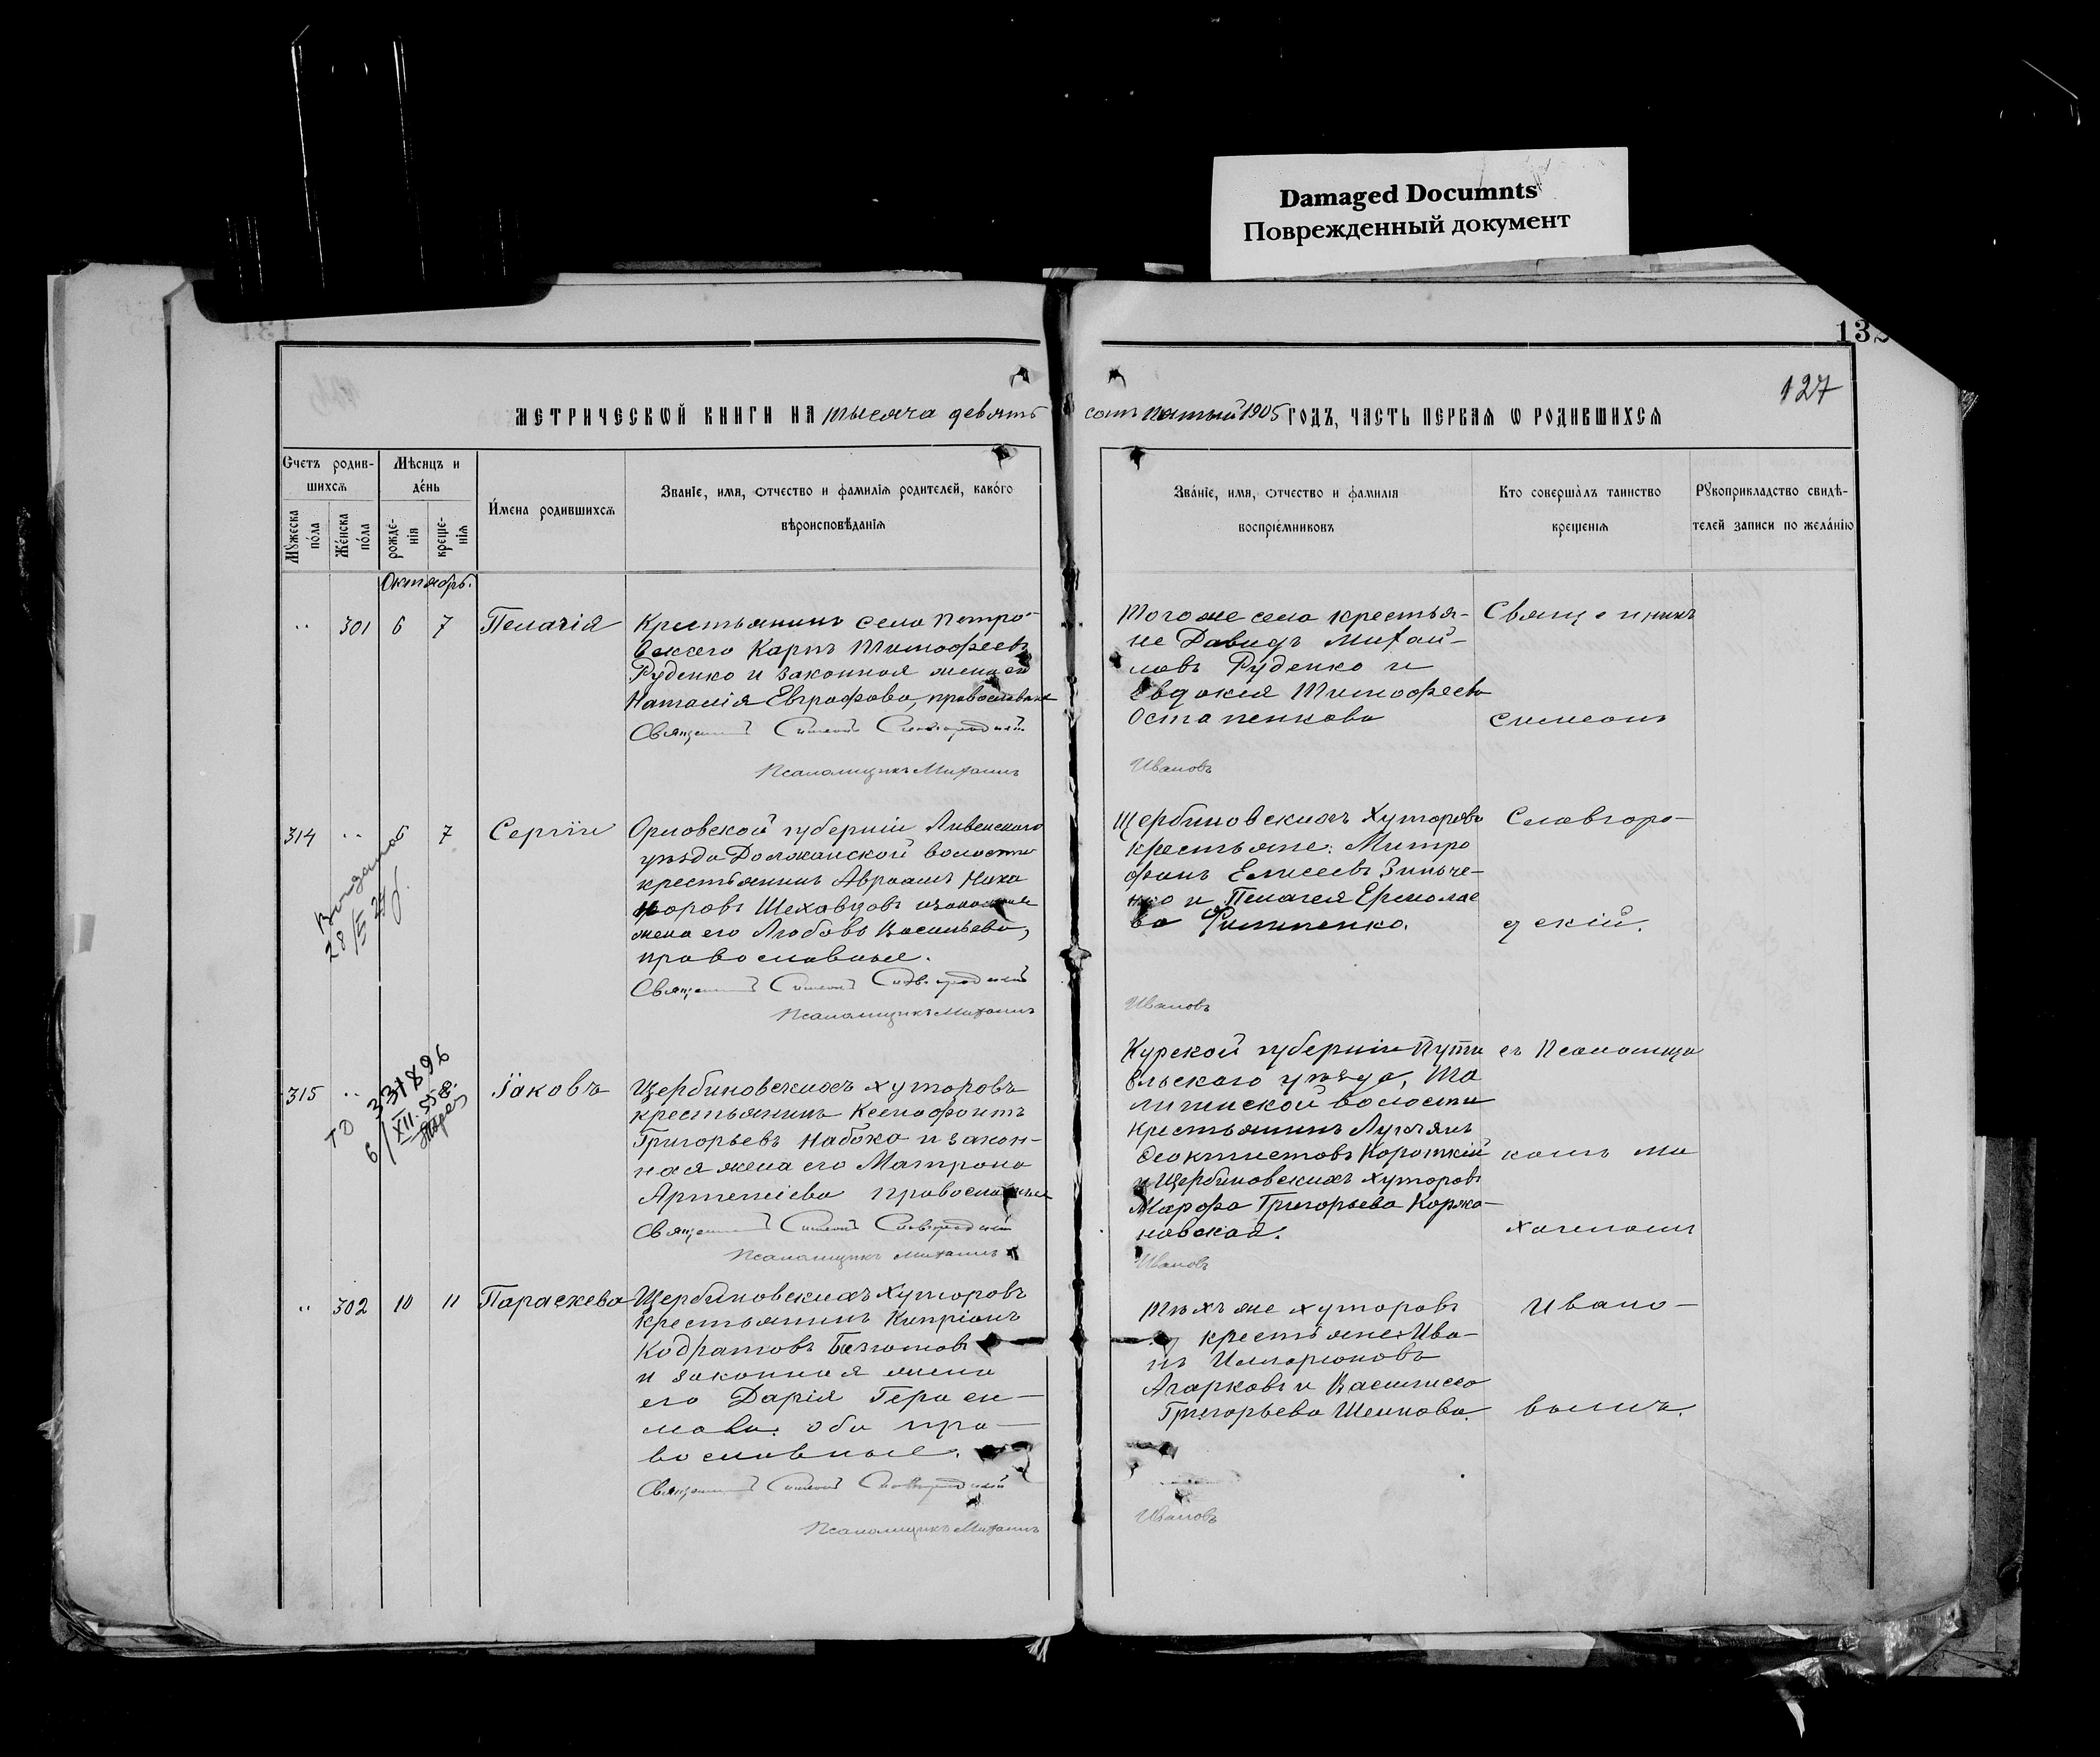 Damaged Documnts
Поврежденный документ
132
127
МЕТРИЧЕСКѠЙ КНИГИ НА тысяча девять сотъ пятый 1905 ГОДЪ, ЧАСТЬ ПЕРВАЯ Ѡ РОДИВШИХСЯ
Счетъ родив-
шихсѧ
Мѣсяцъ и
де́нь
И́мена родившихсѧ
Званїе, имя, ѻтчество и фамилїѧ родителей, како́го
вѣроисповѣданїѧ
Зва́нїе, имя, ѻтчество и фамилїѧ
воспрїе́мниковъ
Кто соверша̀лъ таинство
крещенїѧ
Рꙋкоприкладство свидѣ-
телей записи по жела́нїю
Мꙋ́жеска
по́ла
Же́нска
по́ла
рожде́-
нїя
креще-
нїѧ
Октябрь.
" 301 6 7 Пелагія
Крестьянинъ села Петро-
вскаго Карпъ Тимофеевъ
Руденко и законная жена его
Наталія Евграфова, православные
Священникъ Симеонъ Славгородскій
Псаломщикъ Михаилъ
Того же села крестья-
не Давидъ Михай-
ловъ Руденко и
Евдокия Тимофеева
Остапенкова
Ивановъ
Священникъ
Симеонъ
314 " 6 7 Сергіи
28/III 24 г.
Орловской губерніи Ливенскаго
уѣзда Должанской волости
крестьянинъ Авраамъ Ника
норовъ Шеховцовъ и законная
жена его Любовь Васильева,
православные.
Священникъ Симеонъ Славгородскій
Псаломщикъ Михаилъ
Щербиновскихъ Хуторовъ
крестьяне: Митро
фанъ Елисеевъ Зинче-
нко и Пелагея Ермолае
ва Филипенко.
Ивановъ
Славгоро-
дскій.
315 " Іаковъ
ТО 331896
6/XII-55 г.
Щербиновскихъ хуторовъ
крестьянинъ Ксенофонтъ
Григорьевъ Набока и закон-
ная жена его Матрона
Артеміева православные
Священникъ Симеонъ Славгородскій
Псаломщикъ Михаилъ
Курской губерніи Пути
вльскаго уѣзда,
волости
крестьянинъ Лукьянъ
Феоктистовъ Короткій
и Щербиновскихъ хуторовъ
Марфа Григорьева Коржа-
новская.
Ивановъ
съ Псаломщи
комъ Ми
хаиломъ
" 302 10 11 Параскева
Щербиновскихъ Хуторовъ
крестьянинъ Кипріанъ
Кодратовъ
и законная жена
его Дарія Гераси-
мова. оба пра-
вославные.
Священникъ Симеонъ Славгородскій
Псаломщикъ Михаилъ
Тѣхъ же хуторовъ
крестьяне: Ива-
нъ Иларіоновъ
Агарковъ и Василиса
Григорьева Шеинова.
Ивановъ
Ивано-
вымъ.